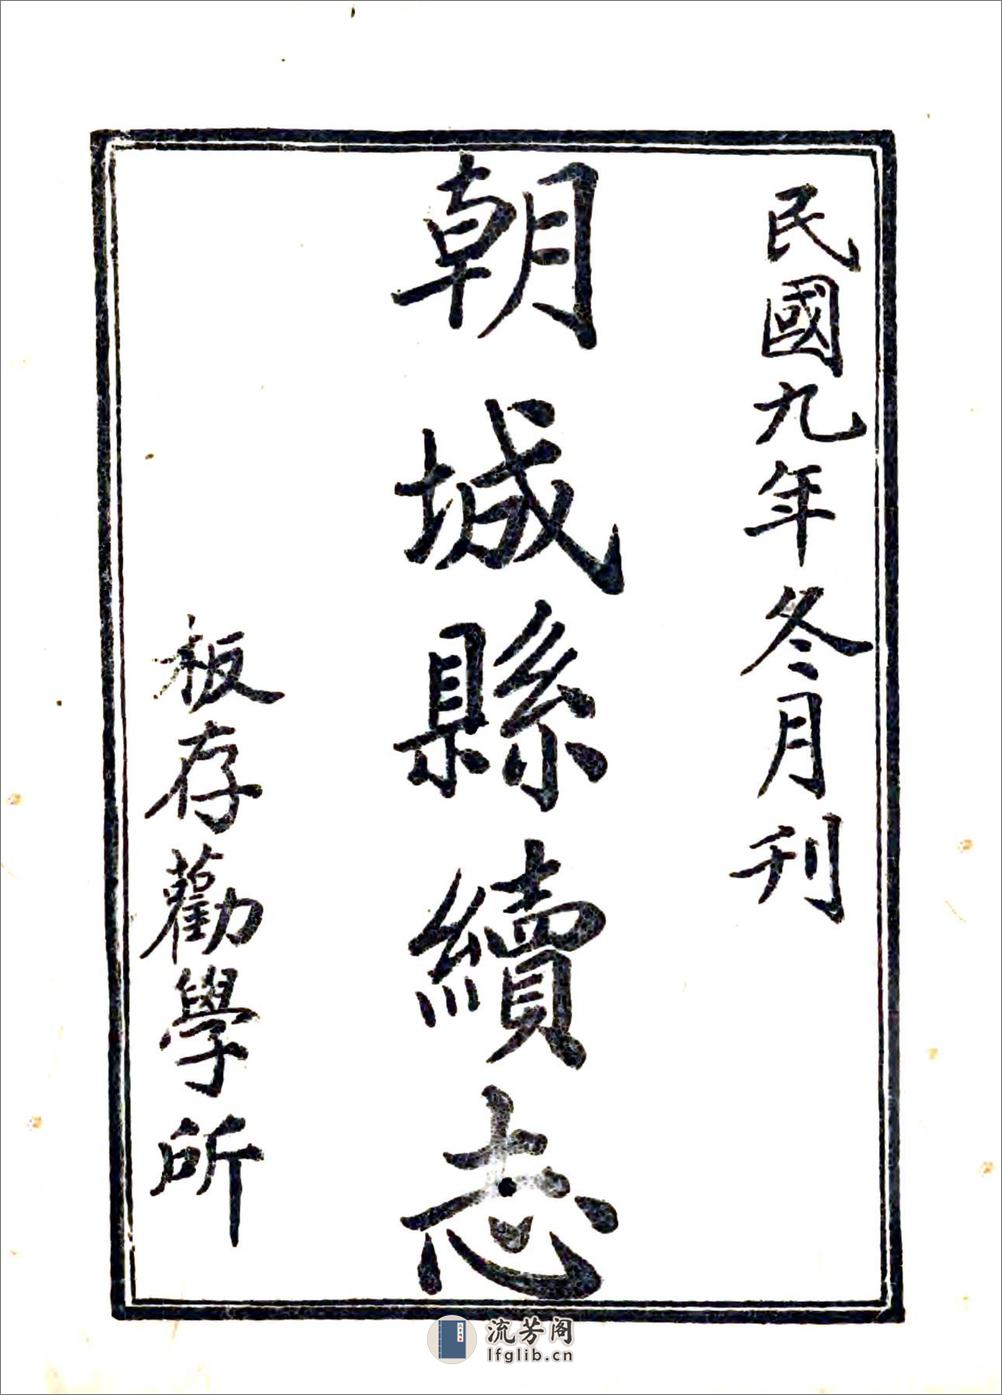 民國九年冬月刊
朝城縣續志
板存勸學所
流芳阁
lfglib.cn